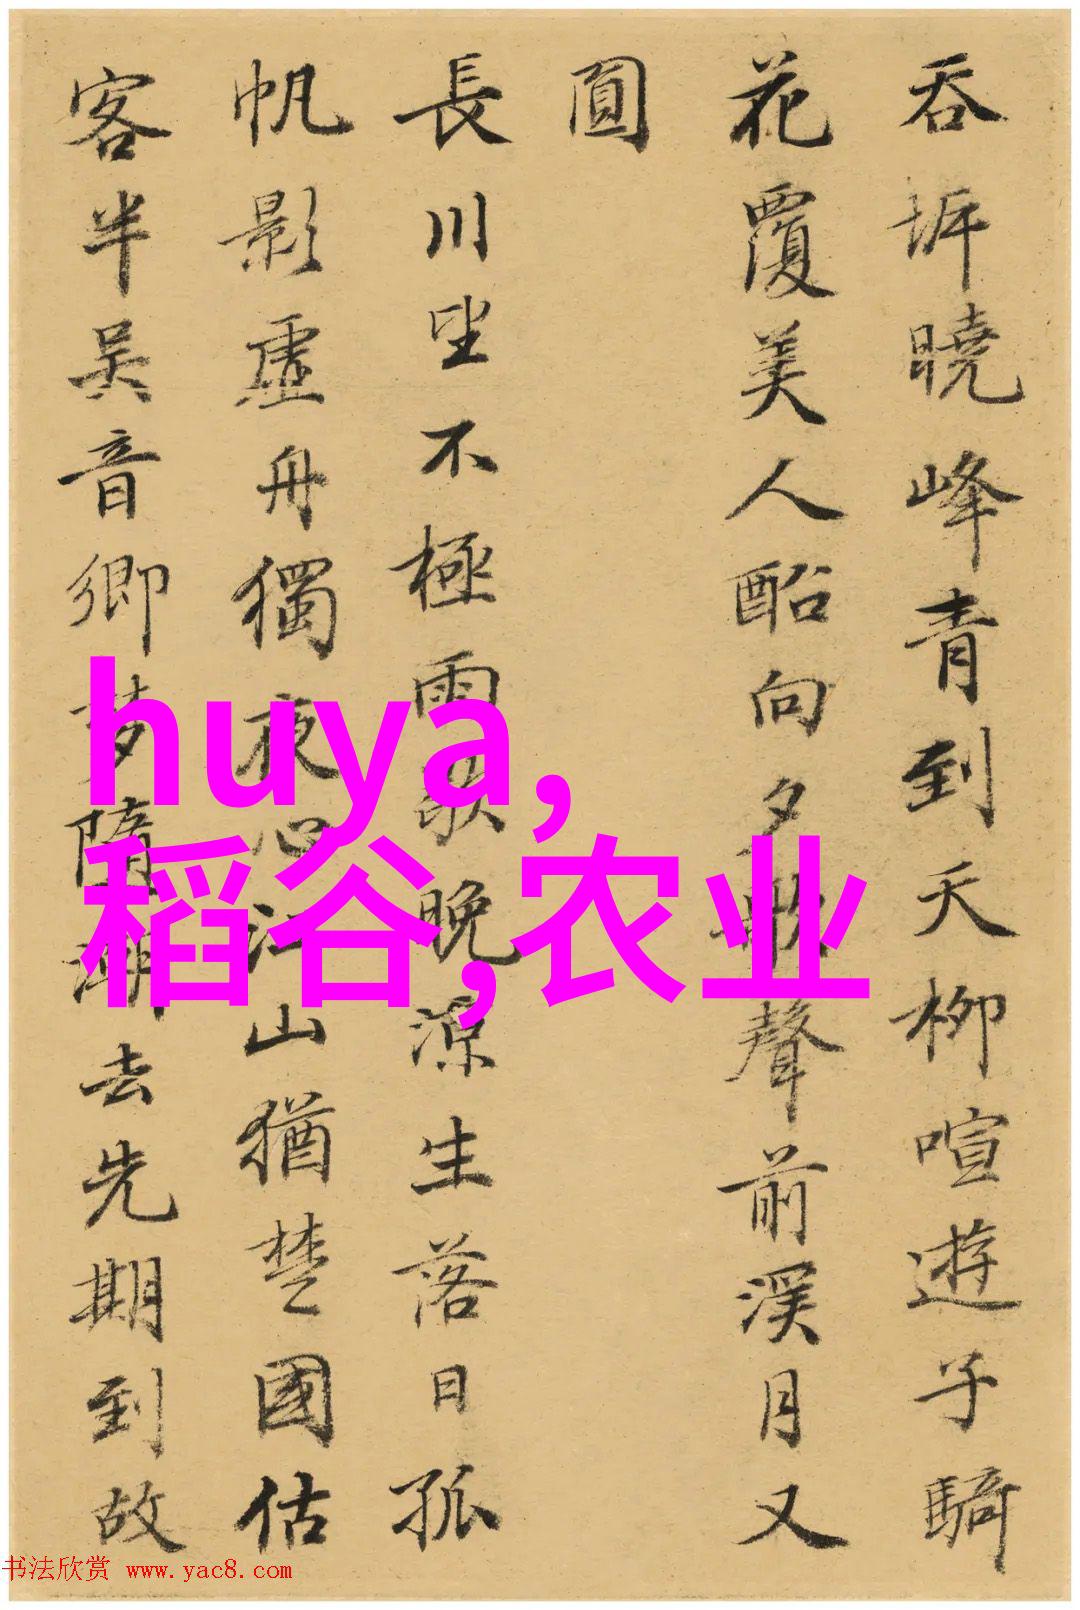 吞坼曉峰青到天柳喧遊子騎
花覆美人酩向夕歌聲前溪月又
圓
長川望不極雨歇晚涼生落日孤
帆影虛舟獨夜心江山猶楚國估
客半吳音鄉夢隋潮去先期到故
huya,
稻谷,农业
书法欣赏 www.yac8.com